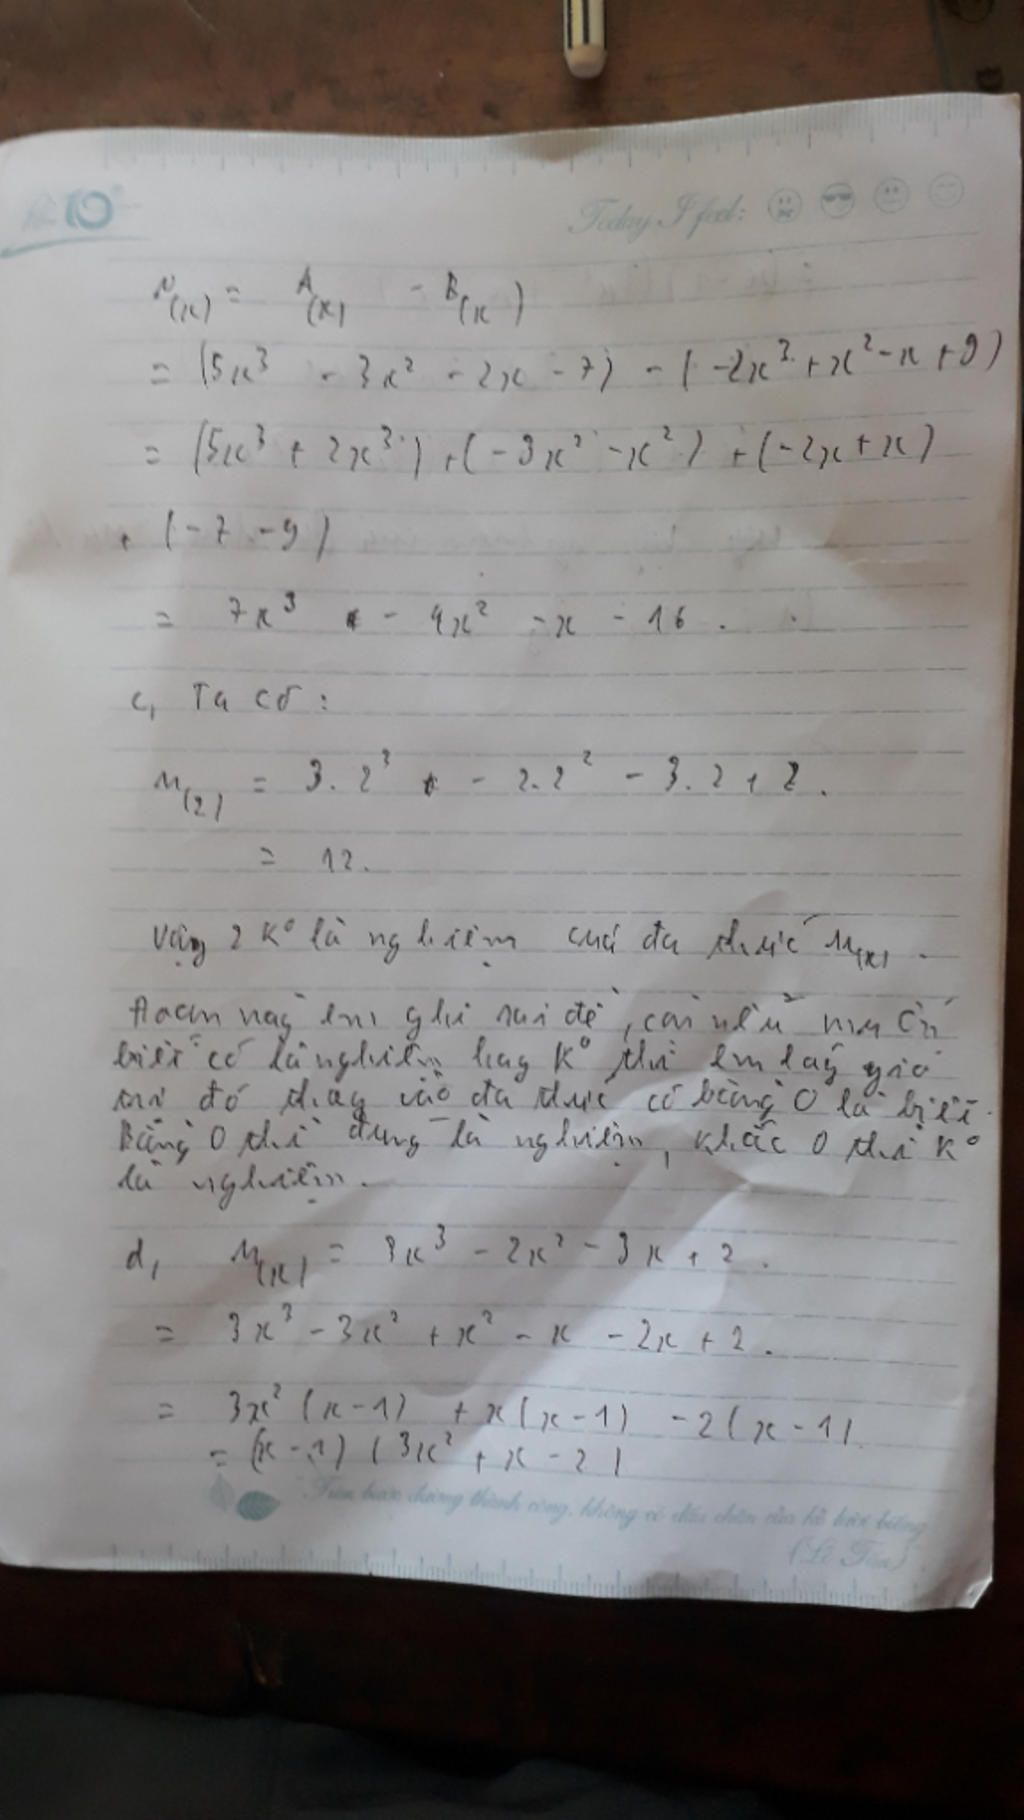 10
Today I feel:
N(x) = A(x) - B(x)
= (5x³ - 3x² - 2x - 7) - (-2x³ + x² - x + 9)
= (5x³ + 2x³) + (-3x² - x²) + (-2x + x)
+ (-7 - 9)
= 7x³ - 4x² - x - 16.
c, Ta có:
M(2) = 3.2³ - 2.2² - 3.2 + 2.
= 12.
Vậy 2 k⁰ là nghiệm của đa thức M(x).
này em ghi sai đề, còn nếu
biết có là nghiệm hay k⁰ thì em lấy giá
đó thay vào đa thức có bằng 0 là biết.
Bằng 0 thì đúng là nghiệm, khác 0 thì k⁰
là nghiệm.
d, M(x) = 3x³ - 2x² - 3x + 2.
= 3x³ - 3x² + x² - x - 2x + 2.
= 3x² (x - 1) + x(x - 1) - 2(x - 1)
= (x - 1) (3x² + x - 2)
Trên bước đường thành công, không có dấu chân của kẻ lười biếng
(Lỗ Tấn)